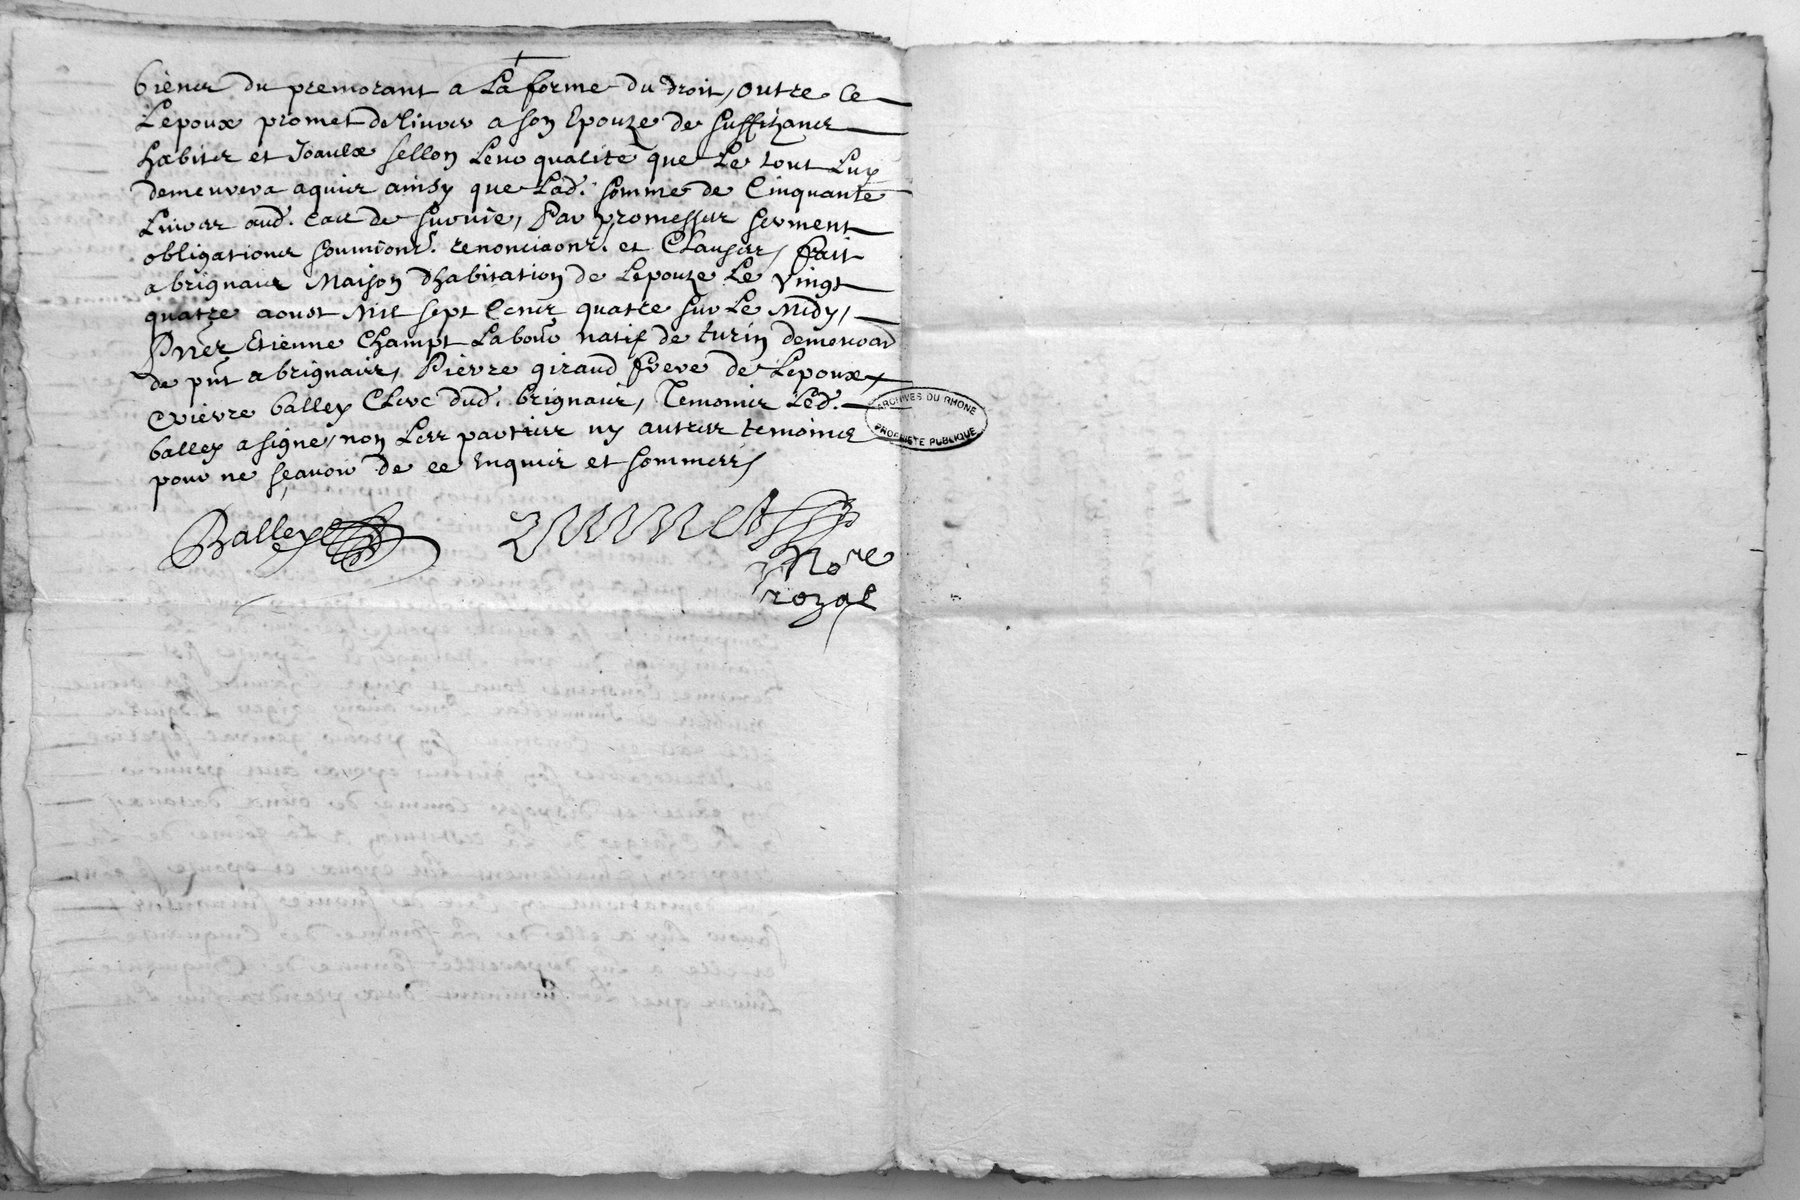 biens du premorant a La forme du droit, outre ce
Lepoux promet deliurer a son Epouze de suffizans
habits et Joaulx sellon Leur qualite que Le tout Luy
demeurera aquis ainsy que Lad. somme de Cinquante
Liures aud. cas de suruie, Par promesses serment
obligations soumions. renonciaons. et Clauses, fait
a brignais Maison dhabitation de Lepouze Le vingt
quatre aoust Mil sept Cens quatre sur Le Midy,
Pnts Etienne Champt Labour natif de turin demeurant
de pnt a brignais, Pierre giraud frere de Lepoux,
Pierre balley Clerc dud. brignais, Temoins Led.
balley a signe, non Les parties ny autres temoins
pour ne sçauoir de ce Enquis et sommes
Balley
No.re
royal
ARCHIVES DU RHONE
PROPRIETE PUBLIQUE